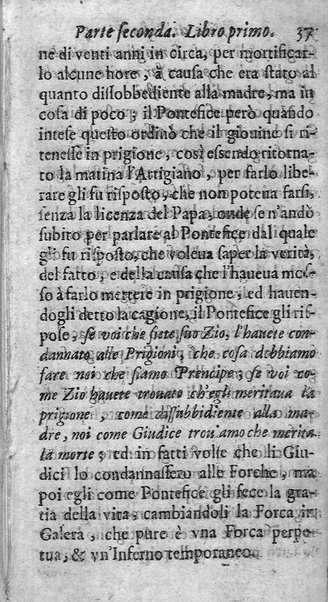 Parte seconda. Libro primo. 37
ne di venti anni in circa, per mortificar-
lo alcune hore, à causa che era stato al
quanto disobbediente alla madre, ma in
cosa di poco; il Pontefice però quando
intese questo ordinò che il giovine si ri-
tenesse in prigione, così essendo ritorna-
to la matina l'Artigiano, per farlo libe-
rare gli fu risposto, che non poteua farsi,
senza la licenza del Papa, onde se n'andò
subito per parlare al Pontefice dal quale
gli fu risposto, che voleua saper la verità,
del fatto, e della causa che l'haueua mos-
so à farlo mettere in prigione, ed hauen-
dogli detto la cagione, il Pontefice gli ris-
pose, se voi che siete suo Zio, l'hauete con-
dannato alle Prigioni, che cosa debbiamo
fare noi che siamo Prencipe; se voi co-
me Zio hauete trouato ch'egli meritaua la
prigione, come dissubbidiente alla ma-
dre, noi come Giudice trouiamo che merita
la morte; ed in fatti volse che li Giu-
dici lo condannassero alle Forche, ma
poi egli come Pontefice gli fece la gra-
tia della vita, cambiandoli la Forca in
Galera, che pure è vna Forca perpe-
tua, & vn'Inferno temporaneo.